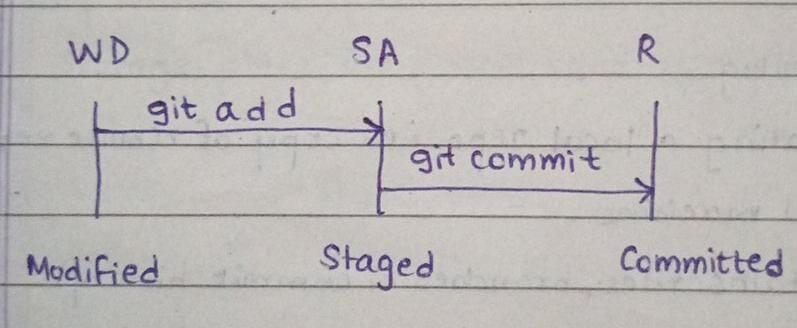 WD SA R
git add
git commit
Modified Staged Committed